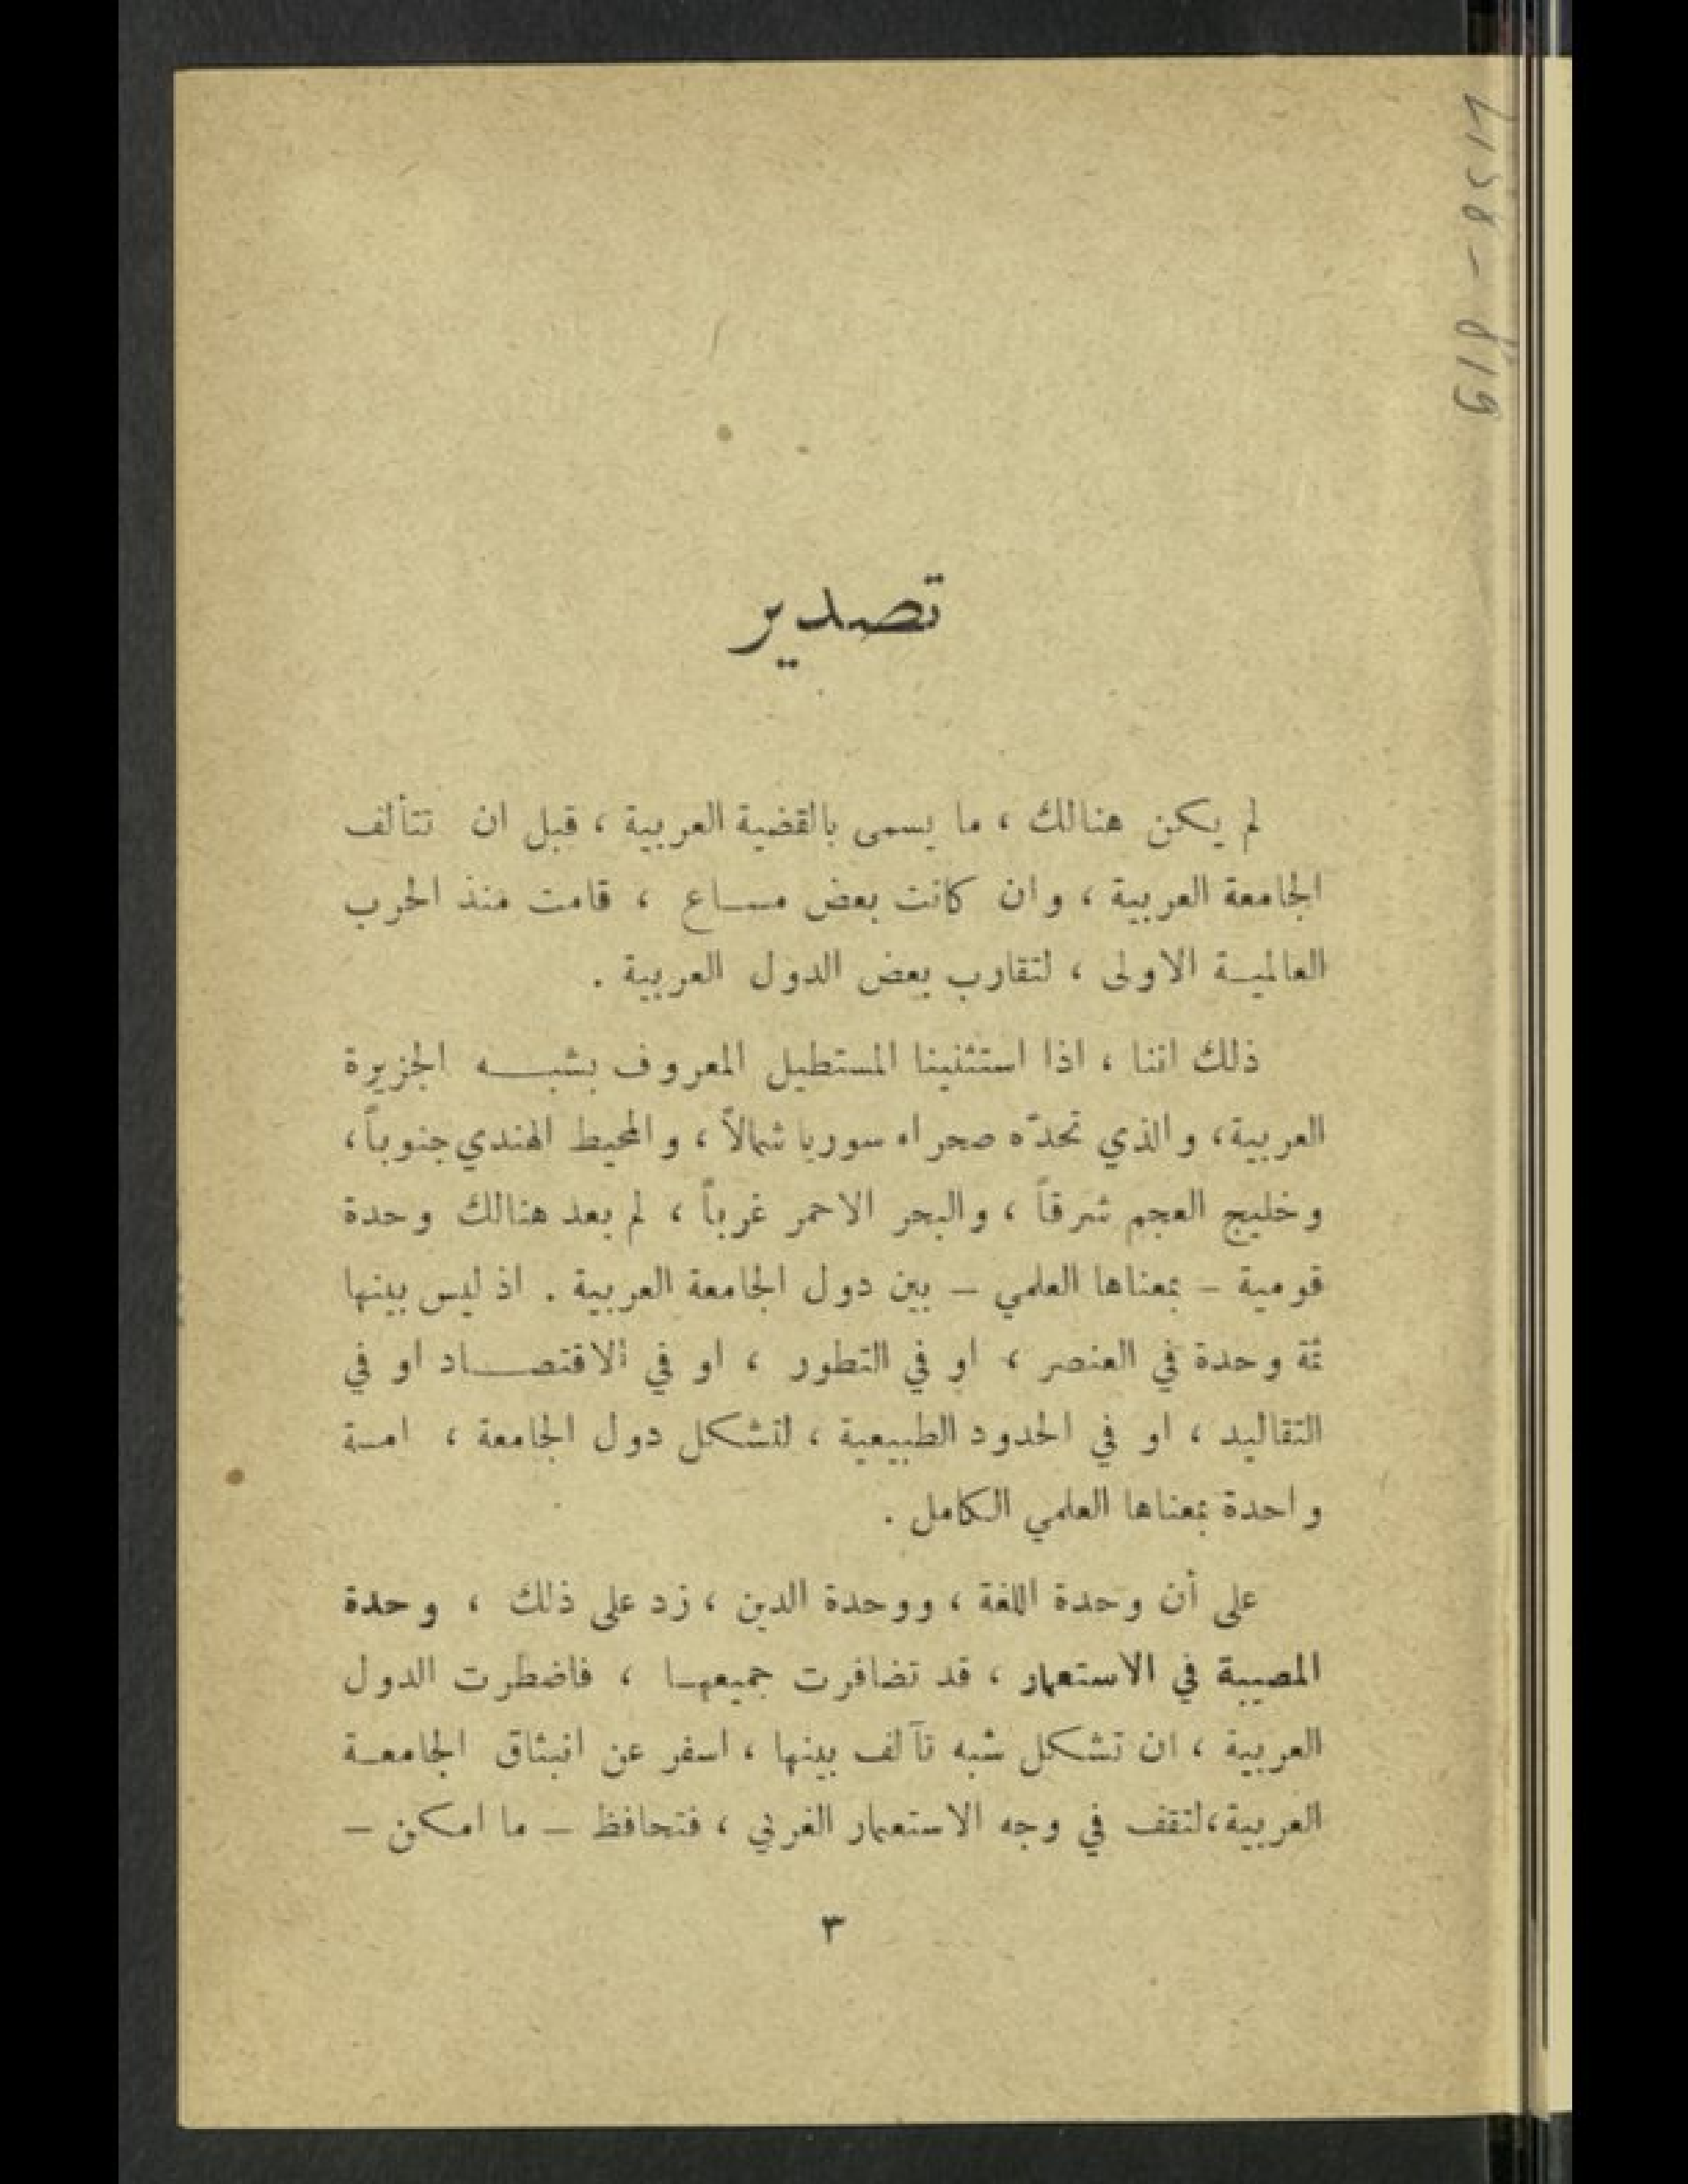 تصدير
لم يكن هنالك ، ما يسمى بالقضية العربية ، قبل ان تتألف
الجامعة العربية ، وان كانت بعض مساع ، قامت منذ الحرب
العالمية الاولى ، لتقارب بعض الدول العربية .
ذلك اننا ، اذا استثنينا المستطيل المعروف بشبه الجزيرة
العربية، والذي تحدّه صحراء سوريا شمالاً ، والمحيط الهندي جنوباً،
وخليج العجم شرقاً ، والبحر الاحمر غرباً ، لم يعد هنالك وحدة
قومية – بمعناها العلمي – بين دول الجامعة العربية . اذ ليس بينها
ثمة وحدة في العنصر ، او في التطور ، او في الاقتصاد او في
التقاليد ، او في الحدود الطبيعية ، لتشكل دول الجامعة ، امة
واحدة بمعناها العلمي الكامل .
على أن وحدة اللغة ، ووحدة الدين ، زد على ذلك ، وحدة
المصيبة في الاستعمار ، قد تضافرت جميعها ، فاضطرت الدول
العربية ، ان تشكل شبه تآلف بينها ، اسفر عن انبثاق الجامعة
العربية،لتقف في وجه الاستعمار الغربي ، فتحافظ – ما امكن –
٣